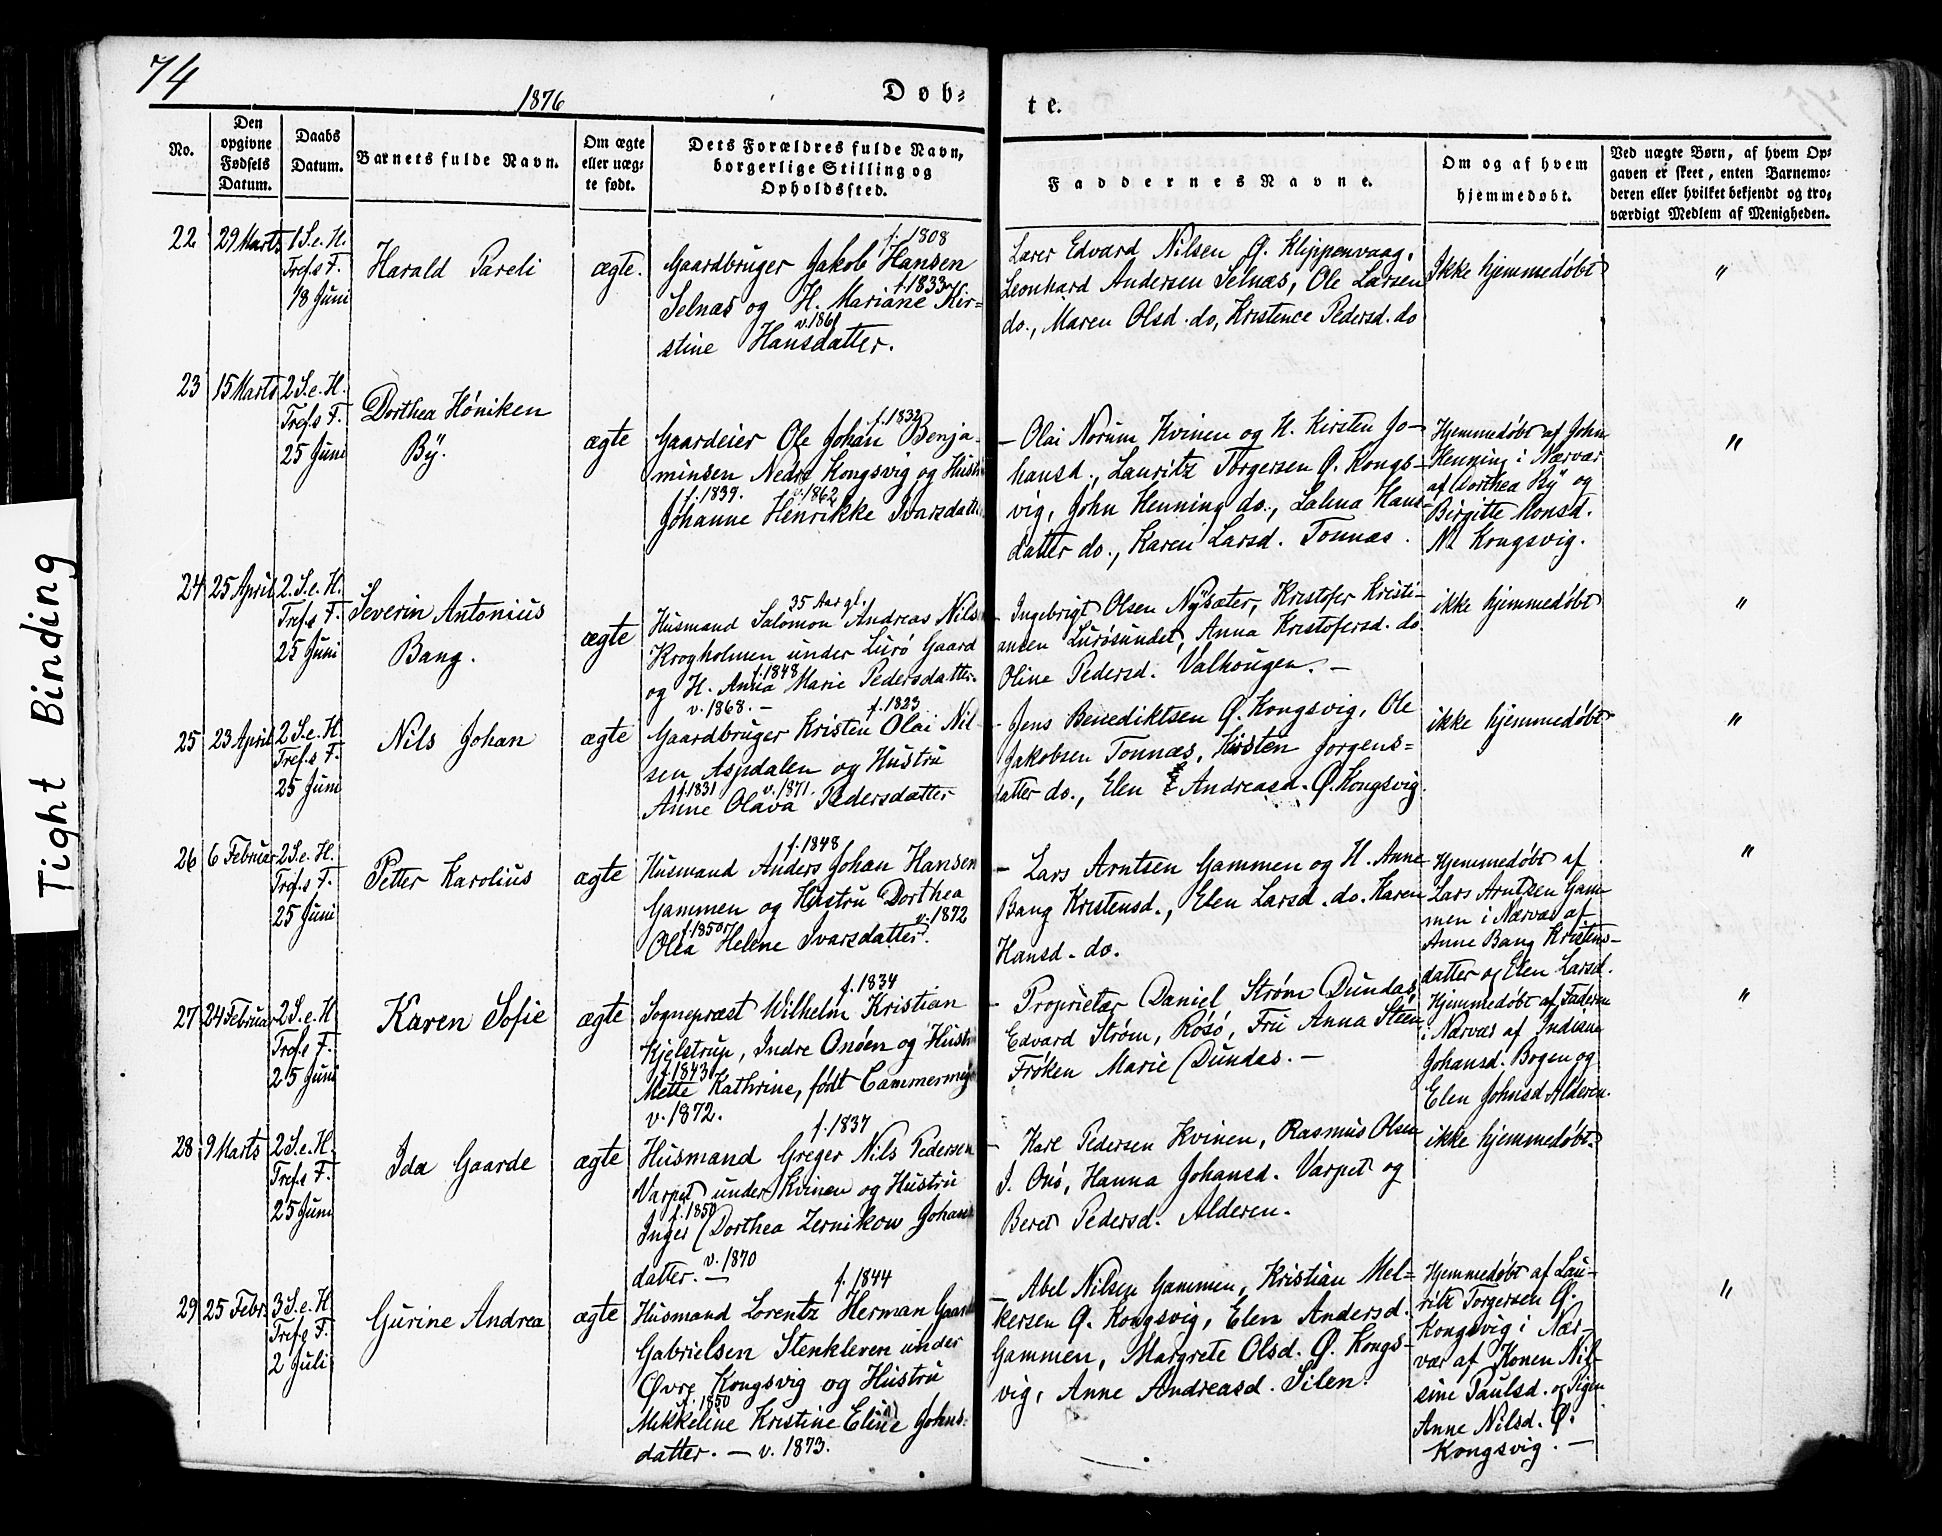 74
1876
Døb-
te.
No.
Den opgivne Fødsels Datum.
Daabs Datum.
Barnets fulde Navn.
Om ægte eller uæg-
te født.
Dets Forældres fulde Navn,
borgerlige Stilling og
Opholdssted.
Faddernes Navne.
Om og af hvem
hjemmedøbt.
Ved uægte Børn, af hvem Op-
gaven er skeet, enten Barnemo-
deren eller hvilket bekjendt og tro-
værdigt Medlem af Menigheden.
22
29 Marts
1 S. e. H.
Tref.s F.
18 Juni
Harald Pareli
ægte.
f. 1808
Gaardbruger Jakob Hansen
f. 1833
Selnæs og H. Mariane Kir-
v. 1861
stine Hansdatter.
Lærer Edvard Nilsen Ø. Klippenvaag,
Leonhard Andersen Selnæs, Ole Larsen
do., Maren Olsd. do, Kristence Pedersd. do
Ikke hjemmedøbt
"
23
15 Marts
2 S. e. H.
Tref.s F.
25 Juni
Dorthea Høniken
Bÿ.
ægte
f. 1832
Gaardeier Ole Johan Benja-
minsen Nedre Kongsvig og Hustr
f. 1839. v. 1862
Johanne Henrikke Ivarsdatte
– Olai Norum Kvinen og H. Kirsten Jo-
hansd., Lauritz Torgersen Ø. Kongs-
vig, John Henning do., Lalina Hans-
datter do., Karen Larsd. Tonnæs.
Hjemmedøbt af John
Henning i Nærvær
af Dorthea Bÿ og
Birgitte Monsd.
N. Kongsvig.
"
24
25 April
2. S. e. H.
Tref.s F.
25 Juni
Severin Antonius
Bang.
ægte
35 Aar gl.
Husmand Salomon Andreas Nils
Krogholmen under Lurø Gaard
f. 1848
og H. Anna Marie Pedersdatter.
v. 1868. –
– Ingebrigt Olsen Nÿsæter, Kristofer Kristi-
ansen Lurøsundet, Anna Kristofersd. do.
Oline Pedersd. Valhougen. –
ikke hjemmedøbt
"
25
23 April
2 S. e. H.
Tref.s F.
25 Juni
Nils Johan
ægte
f. 1823
Gaardbruger Kristen Olai Nil-
sen Aspdalen og Hustru
f. 1831 v. 1871.
Anne Olava Pedersdatter
– Jens Benediktsen Ø. Kongsvig, Ole
Jakobsen Tonnæs, Kirsten Jørgens-
datter do., Elen Andreasd. Ø. Kongsvig.
ikke hjemmedøbt
"
26
6 Februar
2 S. e. H.
Tref.s F.
25 Juni
Petter Karolius
ægte
f. 1848
Husmand Anders Johan Hansen
Gammen og Hustru Dorthea
f. 1850 v. 1872
Olea Helene Ivarsdatter.
– Lars Arntsen Gammen og H. Anne
Bang Kristensd., Elen Larsd. do. Karen
Hansd. do.
Hjemmedøbt af
Lars Arntsen Gam-
men i Nærvær af
Anne Bang Kristens-
datter og Elen Larsd.
"
27
24 Februar
2 S. e. H
Tref.s F.
25 Juni
Karen Sofie
ægte
f. 1834
Sognepræst Wilhelm Kristian
Kjelstrup, Indre Onøen og Hustr
f. 1843
Mette Kathrine, født Cammermeye
v. 1872.
– Proprietær Daniel Strøm Dundas,
Edvard Strøm, Røsø, Fru Anna Steen
Frøken Marie Dundas. –
Hjemmedøbt af Faderen
i Nærvær af Indiana
Johansd. Bogen og
Elen Johnsd Alderen.
"
28
9 Marts
2 S. e. H.
Tref.s F.
25 Juni
Ida Gaarde
ægte
f. 1837
Husmand Greger Nils Pedersen
Varpet under Kvinen og Hustru
f. 1850
Inger Dorthea Zernikow Johans
v. 1870
datter. –
– Karl Pedersen Kvinen, Rasmus Olsen
I. Onø, Hanna Johansd. Varpet og
Beret Pedersd. Alderen.
ikke hjemmedøbt.
29
25 Febr.
3 S. e. H.
Tref.s F.
2 Juli
Gurine Andrea
ægte
f. 1844
Husmand Lorentz Herman Gaarde
Gabrielsen Stenkleven under
Øvre Kongsvig og Hustru
f. 1850
Mikkeline Kristine Eline Johns-
datter. – v. 1873.
– Abel Nilsen Gammen, Kristian Mel-
kersen Ø. Kongsvig, Elen Andersd.
Gammen, Margrete Olsd. Ø. Kongs-
vig, Anne Andreasd. Silen.
Hjemmedøbt af Lau-
ritz Torgersen Ø.
Kongsvig i Nær-
vær af Konen Nil-
sine Paulsd. og Pigen
Anne Nilsd. Ø.
Kongsvig. –
"
Tight Binding